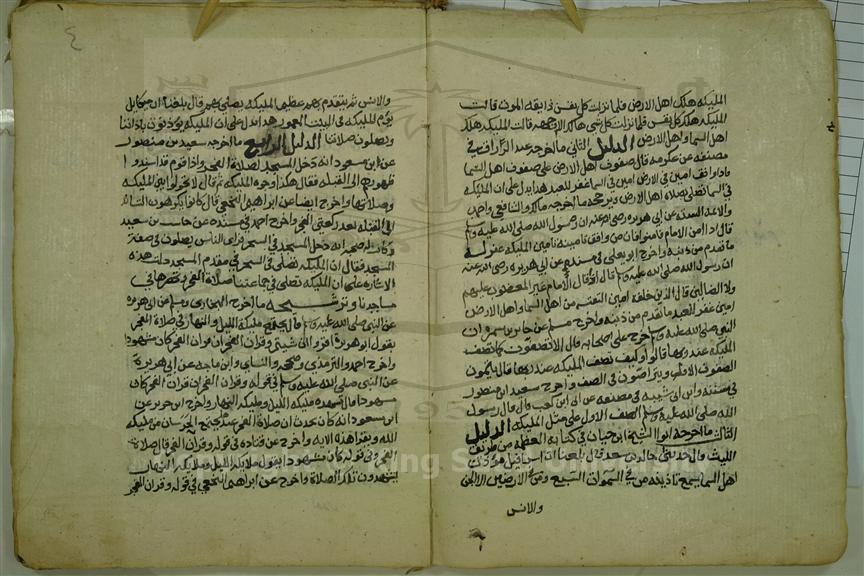 الملیكه هلك اهل الارض فلما انزلت كل نفس ذايقة الموت قالت
الملیكه هلك كل نفس فلما انزلت كل شي هالك الا وجهه قالت الملیكه هلك
اهل السما واهل الارض الدليل الثاني ما اخرجه عبد الرزاق في
مصنفه عن عكرمة قال صفوف اهل الارض على صفوف اهل السما
فاذا وافق امين في الارض امين في السما غفر للعبد هذا يدل على ان الملیكه
في السما تصلي بصلاة اهل الارض ويرجحه ما اخرجه مالك والشافعي واحمد
والائمة الستة عن ابي هريره رضي الله عنه ان رسول الله صلى الله عليه وسلم
قال اذا امن الامام فامنوا فان من وافق تامينه تامين الملیكه غفر له
ما تقدم من ذنبه واخرج ابو يعلى في مسنده عن ابي هريره رضي الله عنه
ان رسول الله صلى الله عليه وسلم قال اذا قال الامام غير المغضوب عليهم
ولا الضالين قال الذين خلفه امين التقت من اهل السما واهل الارض
امين غفر للعبد ما تقدم من ذنبه واخرج مسلم عن جابر بن سمره ان
النبي صلى الله عليه وسلم خرج على اصحابه فقال الا تصفون كما تصف
الملیكه عند ربها قالوا وكيف تصف الملیكه عند ربها قال يتمون
الصفوف الاول ويتراصون في الصف واخرج سعيد بن منصور
في سننه وابن ابي شيبه في مصنفه عن ابي بن كعب قال قال رسول
الله صلى الله عليه وسلم الصف الاول على مثل الملیكه الدليل
الثالث ما اخرجه ابو الشيخ ابن حيان في كتابه العظمه من طريق
الليث قال حدثني خالد بن سعيد قال بلغنا ان اسرافيل مؤذن
اهل السما يسمع تاذينه من في السموات السبع ومن في الارضين الا الجن
والانس
والانس ثم يتقدم بهم عظيم الملیكه يصلي بهم قال بلغنا ان ميكايل
يؤم الملیكه في البيت المعمور هذا يدل على ان الملیكه يؤذنون باذاننا
ويصلون صلاتنا الدليل الرابع ما اخرجه سعيد بن منصور
عن ابن مسعود انه دخل المسجد لصلاة الفجر واذا قوم قد اسندوا
ظهورهم الى القبلة فقال هكذا وجوه الملیكه ثم قال لا تحولوا بين الملیكه
وصلاتها واخرج ايضا عن ابراهيم النخعي قال كانوا يكرهون التساند
الى القبلة بعد ركعتي الفجر واخرج احمد في مسنده عن حابس بن سعيد
وكانت له صحبة انه دخل المسجد في السحر فراى الناس يصلون في صفة
المسجد فقال ان الملیكه تصلي في السحر في مقدم المسجد دلت هذه
الاثار على ان الملیكه تصلي في جماعتنا صلاة الفجر
مساجدنا وترشحه ما اخرج البخاري ومسلم عن ابي هريره
عن النبي صلى الله عليه وسلم قال تجتمع ملیكة الليل والنهار في صلاة الفجر
يقول ابو هريره اقرؤا ان شيتم وقران الفجر ان قران الفجر كان مشهودا
واخرج احمد والترمذي وصححه والنساي وابن ماجه عن ابي هريره
عن النبي صلى الله عليه وسلم في قوله وقران الفجر ان قران الفجر كان
مشهودا قال تشهده ملیكة الليل وملیكة النهار واخرج ابن جرير عن
ابن مسعود انه كان يحدث ان صلاة الفجر عندها يجتمع الحرسان من ملیكة
الله ويقرا هذه الايه واخرج عن قتاده في قوله وقران الفجر قال صلاة
الفجر وفي قوله كان مشهودا يقول ملایكة الليل وملایكة النهار
يشهدون تلك الصلاة واخرج عن ابراهيم النخعي في قوله وقران الفجر